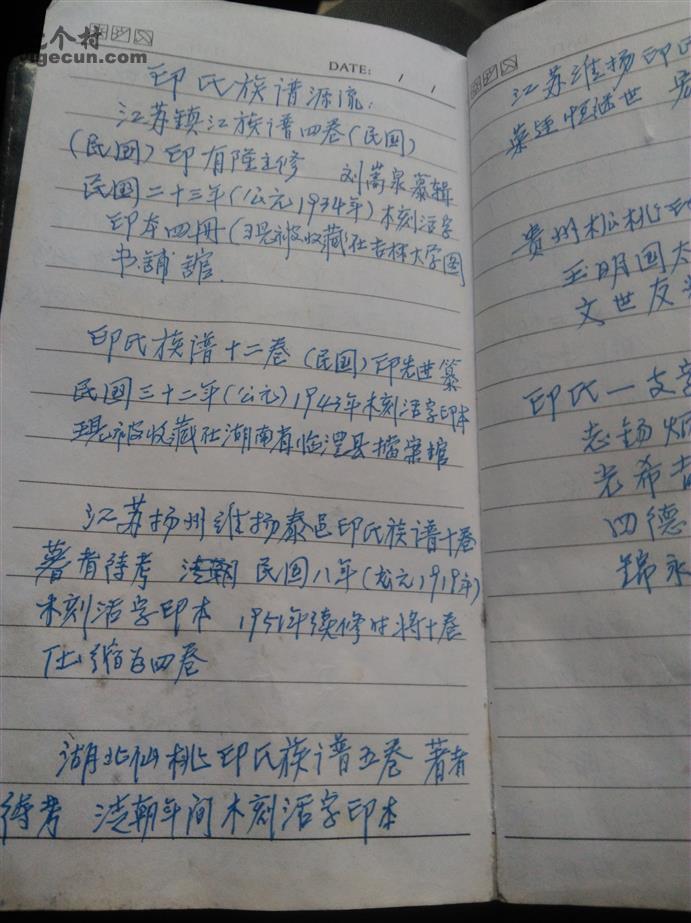 个村
gecun.com
DATE: / /
印氏族谱源流:
江苏镇江族谱四卷(民国)
(民国)印有隆主修 刘嵩泉纂辑
民国二十三年(公元1934年)木刻活字
印本四冊(现被收藏在吉林大学图
书舗舘
印氏族谱十二卷(民国)印先世纂
民国三十二年(公元)1943年木刻活字印本
现被收藏在湖南省临澧县档案馆
江苏扬州维扬泰邑印氏族谱十卷
著者待考 清朝 民国八年(公元1919年)
木刻活字印本 1951年续修时将十卷
压缩为四卷
湖北仙桃印氏族谱五卷 著者
待考 清朝年间木刻活字印本
江苏维扬印氏
荣廷恒继世
贵州松桃印
玉明国
文世友
印氏一支
志锡炳
光希
四德
锦永